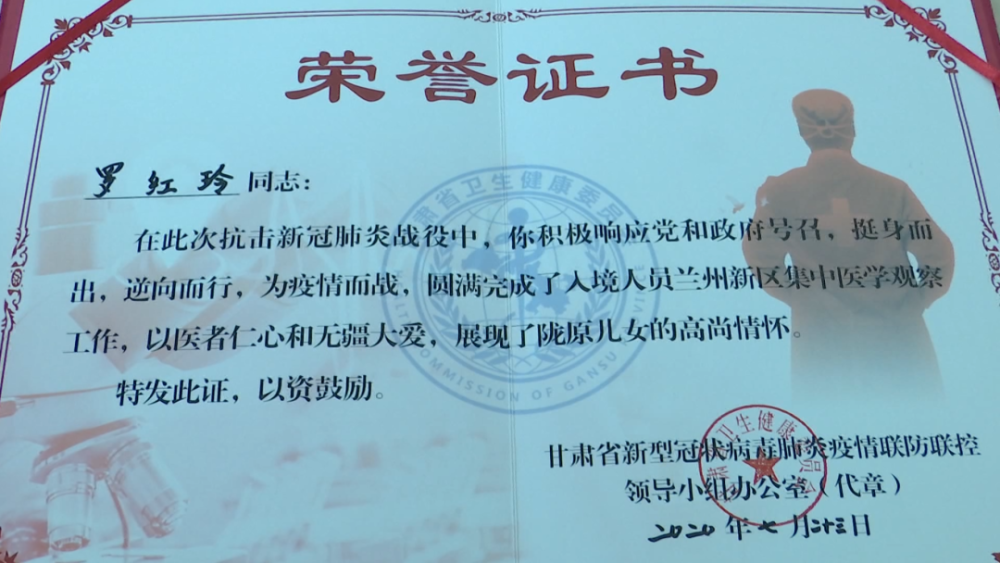 荣誉证书
罗红玲 同志：
在此次抗击新冠肺炎战役中，你积极响应党和政府号召，挺身而
出，逆向而行，为疫情而战，圆满完成了入境人员兰州新区集中医学观察
工作，以医者仁心和无疆大爱，展现了陇原儿女的高尚情怀。
特发此证，以资鼓励。
甘肃省新型冠状病毒肺炎疫情联防联控
领导小组办公室（代章）
2020年七月二十三日
肃省卫生健康委员
COMMISSION OF GANSU
卫生健康委员会